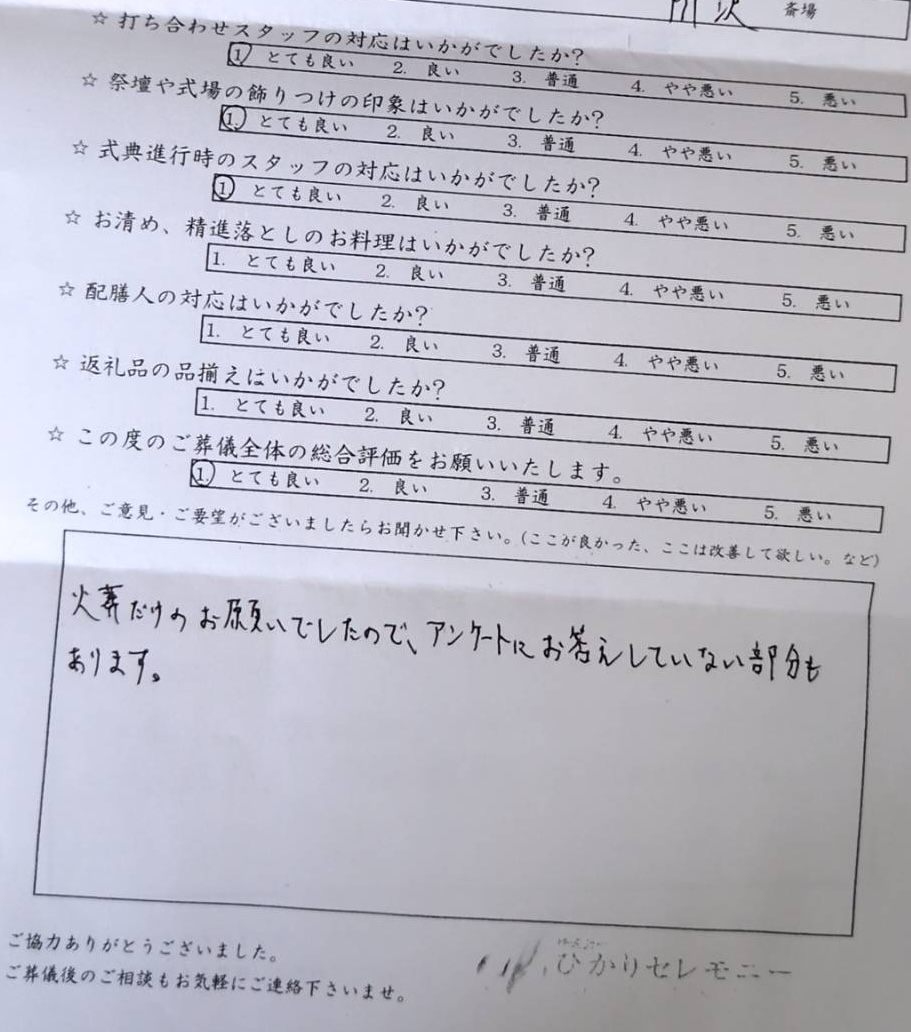 所沢 斎場
☆ 打ち合わせスタッフの対応はいかがでしたか?
1. とても良い 2. 良い 3. 普通 4. やや悪い 5. 悪い
☆ 祭壇や式場の飾りつけの印象はいかがでしたか?
1. とても良い 2. 良い 3. 普通 4. やや悪い 5. 悪い
☆ 式典進行時のスタッフの対応はいかがでしたか?
1. とても良い 2. 良い 3. 普通 4. やや悪い 5. 悪い
☆ お清め、精進落としのお料理はいかがでしたか?
1. とても良い 2. 良い 3. 普通 4. やや悪い 5. 悪い
☆ 配膳人の対応はいかがでしたか?
1. とても良い 2. 良い 3. 普通 4. やや悪い 5. 悪い
☆ 返礼品の品揃えはいかがでしたか?
1. とても良い 2. 良い 3. 普通 4. やや悪い 5. 悪い
☆ この度のご葬儀全体の総合評価をお願いいたします。
1. とても良い 2. 良い 3. 普通 4. やや悪い 5. 悪い
その他、ご意見・ご要望がございましたらお聞かせ下さい。(ここが良かった、ここは改善して欲しい。など)
火葬だけのお願いでしたので、アンケートにお答えしていない部分も
あります。
ご協力ありがとうございました。
ご葬儀後のご相談もお気軽にご連絡下さいませ。
ひかりセレモニー